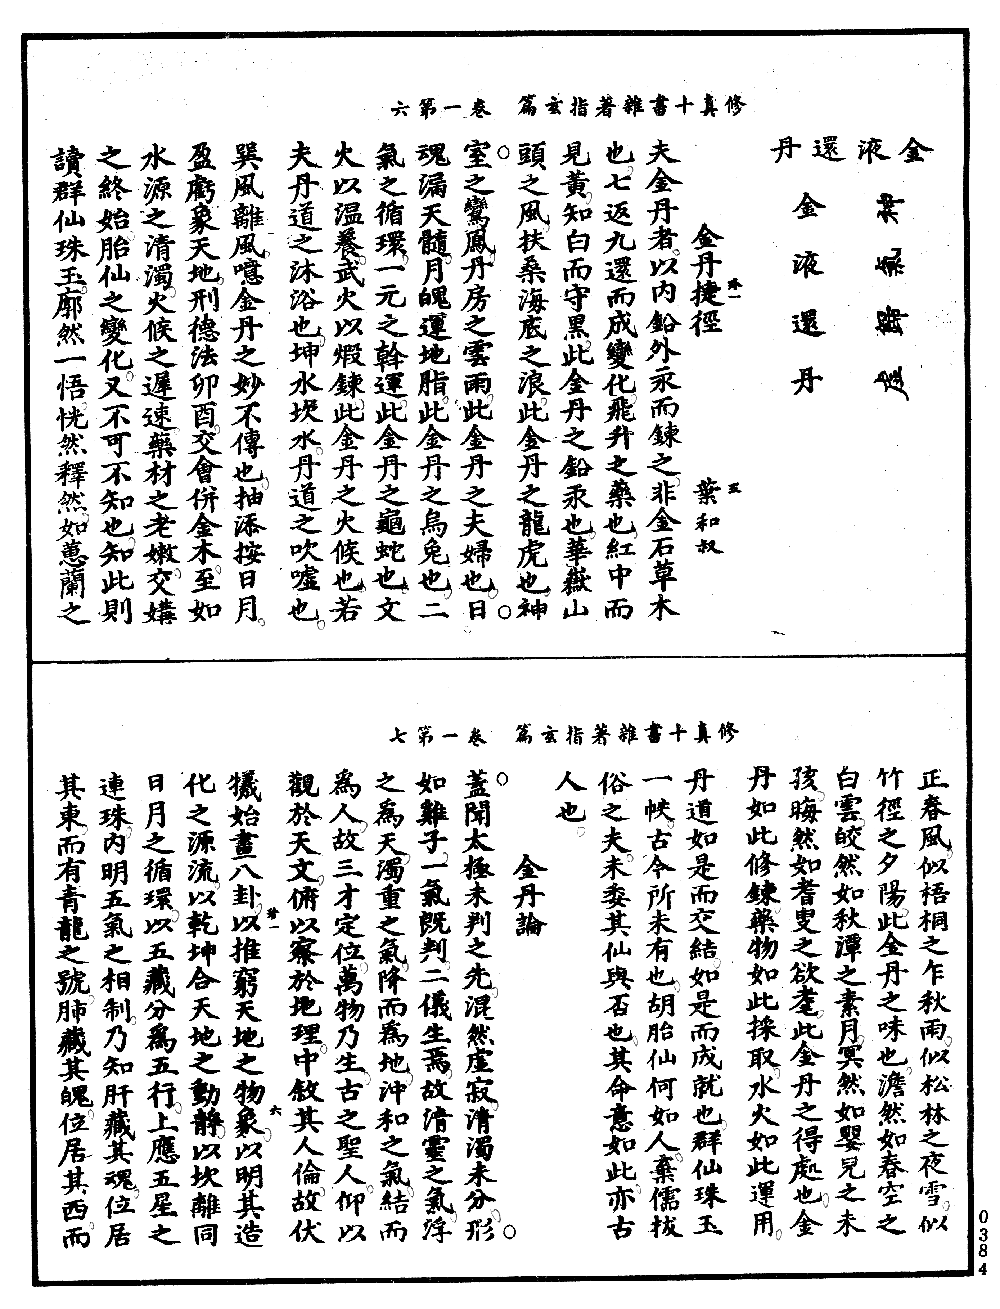 修真十書雜著指玄篇　卷一第六
金液還丹
金液還丹
金丹捷徑
珠一
葉和叔
五
夫金丹者。以内鉛外汞而鍊之。非金石草木
也。七返九還而成變化飛升之藥也。紅中而
見黃。知白而守黑。此金丹之鉛汞也。華嶽山
頭之風。扶桑海底之浪。此金丹之龍虎也。神
室之鸞鳳。丹房之雲雨。此金丹之夫婦也。日
魂漏天髓。月魄運地脂。此金丹之烏兔也。二
氣之循環。一元之幹運。此金丹之龜蛇也。文
火以溫養。武火以煆鍊。此金丹之火候也。若
夫丹道之沐浴也。坤水坎水。丹道之吹噓也。
巽風離風。噫金丹之妙不傳也。抽添按日月。
盈虧象天地。刑德法卯酉。交會併金木。至如
水源之清濁。火候之遲速。藥材之老嫩。交媾
之終始。胎仙之變化。又不可不知也。知此則
讀群仙珠玉。廓然一悟。恍然釋然。如蕙蘭之
修真十書雜著指玄篇　卷一第七
正春風。似梧桐之乍秋雨。似松林之夜雪。似
竹徑之夕陽。此金丹之味也。澹然如春空之
白雲。皎然如秋潭之素月。冥然如嬰兒之未
孩。晦然如耆叟之欲耄。此金丹之得處也。金
丹如此修鍊。藥物如此採取。水火如此運用。
丹道如是而交結。如是而成就也。群仙珠玉
一帙。古今所未有也。胡胎仙何如人。棄儒拔
俗之夫。未委其仙與否也。其命意如此。亦古
人也。
金丹論
蓋聞太極未判之先。混然虛寂。清濁未分。形
如雞子。一氣既判。二儀生焉。故清靈之氣。浮
之爲天。濁重之氣。降而爲地。沖和之氣。結而
爲人。故三才定位。萬物乃生。古之聖人。仰以
觀於天文。俯以察於地理。中敘其人倫。故伏
犧始畫八卦。以推窮天地之物象。以明其造
六
化之源流。以乾坤合天地之動靜。以坎離同
日月之循環。以五藏分爲五行。上應五星之
連珠。内明五氣之相制。乃知肝藏其魂。位居
其東。而有青龍之號。肺藏其魄。位居其西。而
0384